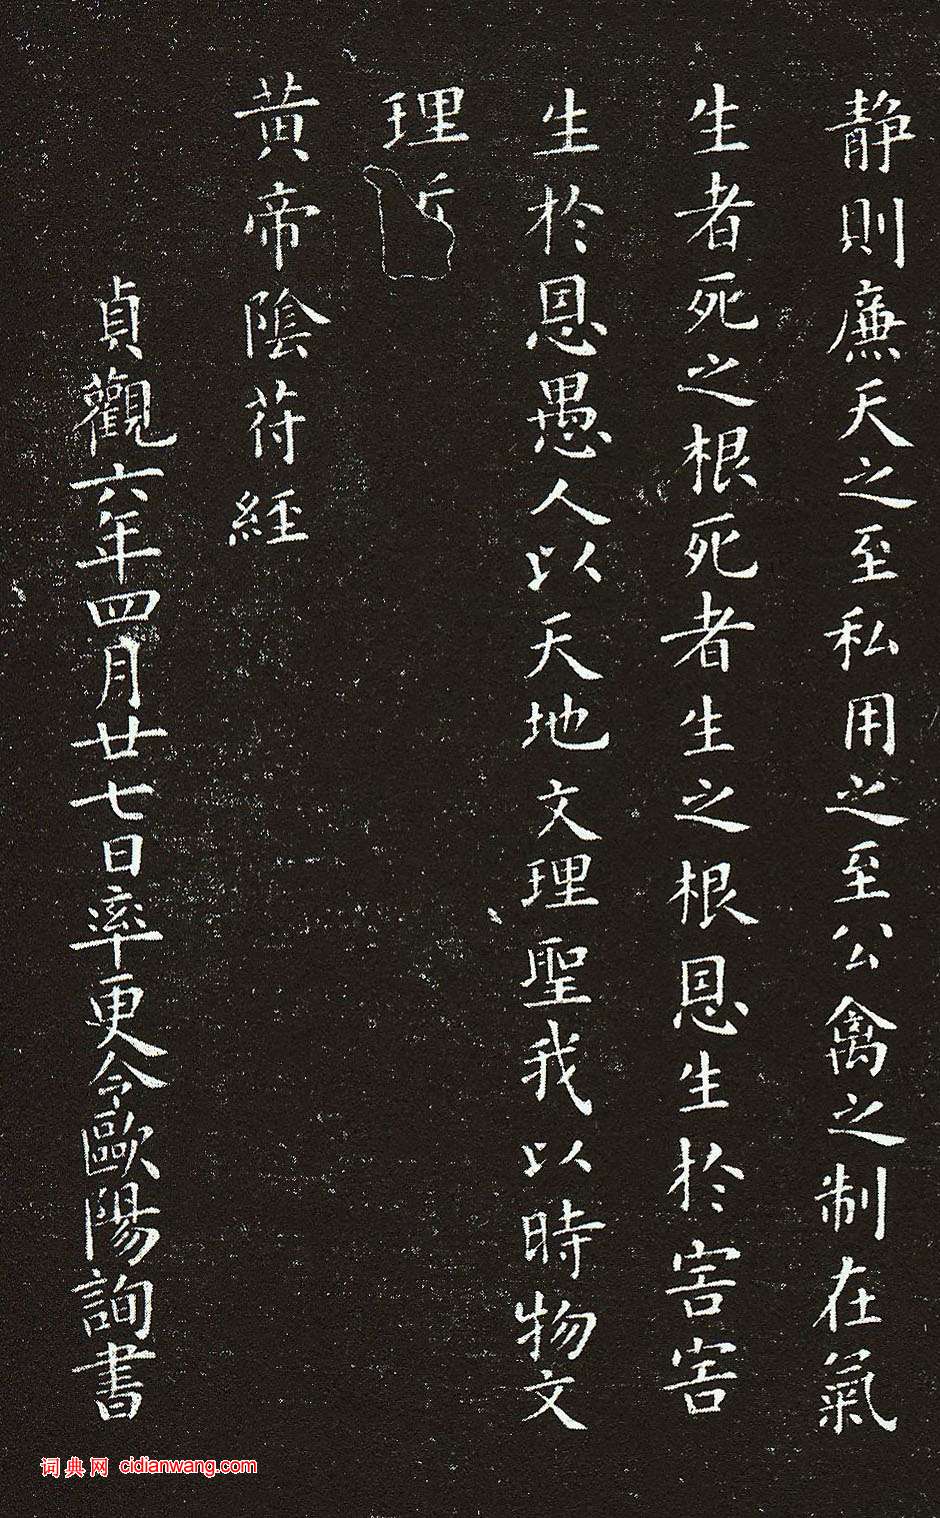 静則廉天之至私用之至公禽之制在氣
生者死之根死者生之根恩生於害害
生於恩愚人以天地文理聖我以時物文
理
黃帝陰苻經
貞觀六年四月廿七日率更令歐陽詢書
词典网 cidianwang.com